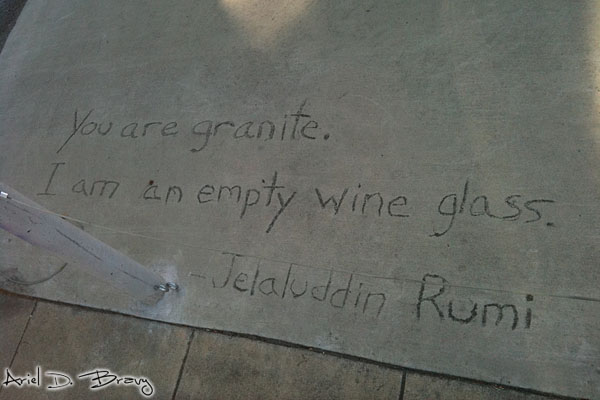 You are granite.
I am an empty wine glass.
-Jelaluddin Rumi
Ariel D. Bravy